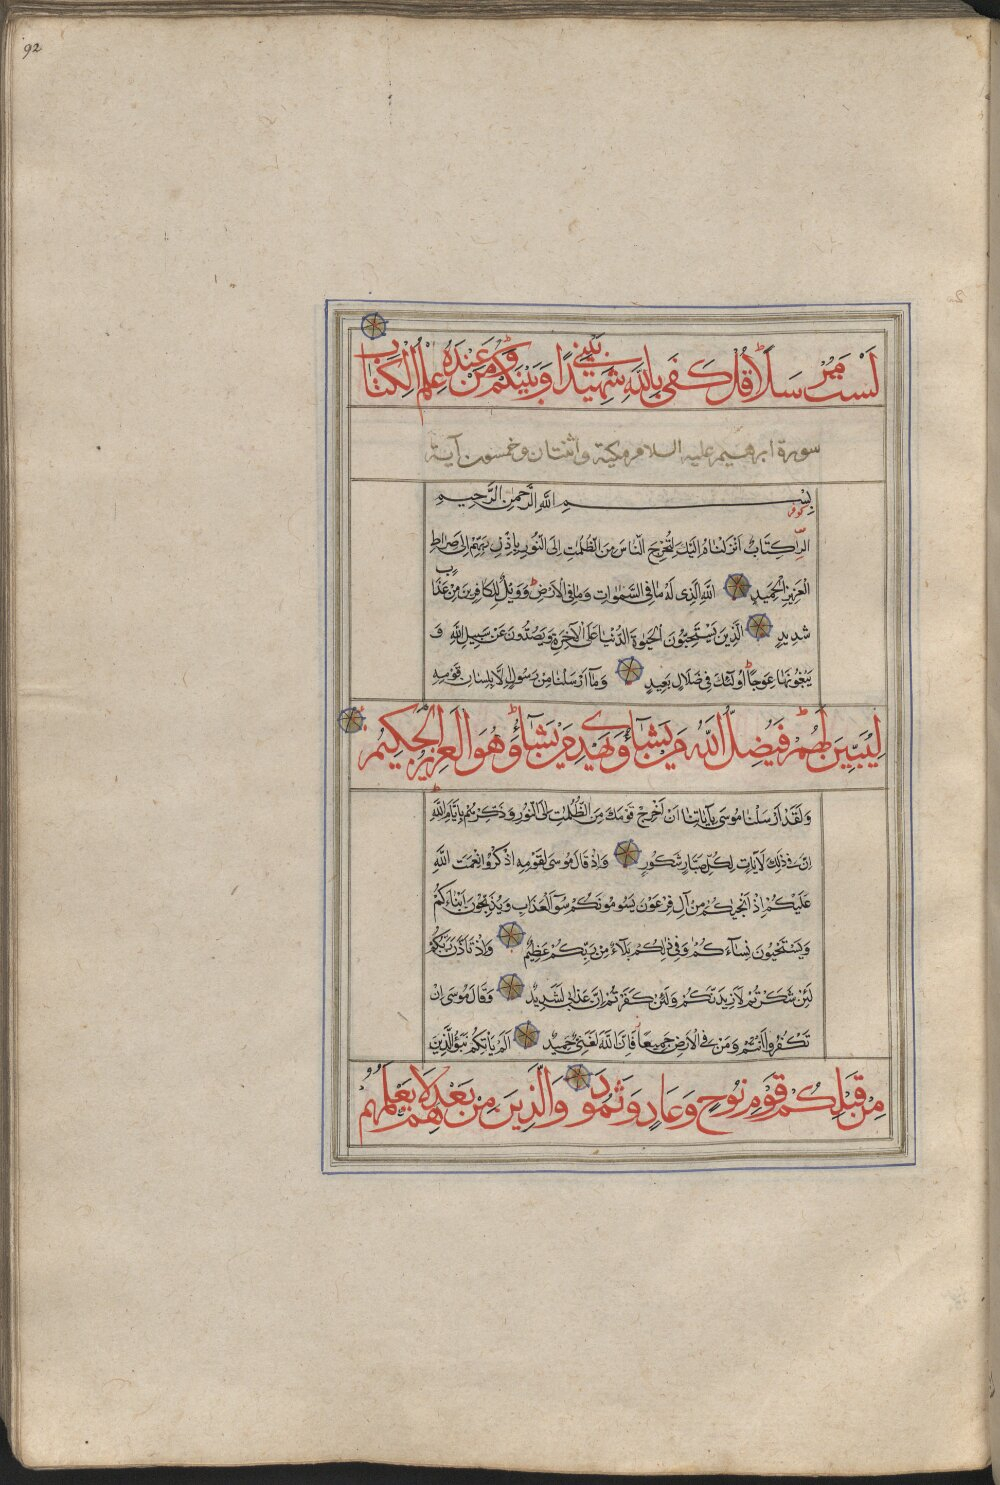 92
لَسْتَ مُرْسَلًا ط قُلْ كَفَى بِاللَّهِ شَهِيدًا بَيْنِي وَبَيْنَكُمْ وَمَنْ عِنْدَهُ عِلْمُ الْكِتَابِ
سورة ابرهيم عليه السلام مكية واثنتان وخمسون آية
بِسْمِ اللَّهِ الرَّحْمنِ الرَّحِيمِ
الر كِتَابٌ اَنْزَلْنَاهُ اِلَيْكَ لِتُخْرِجَ النَّاسَ مِنَ الظُّلُمَتِ اِلَى النُّورِ بِاِذْنِ رَبِّهِمْ اِلَى صِرَاطِ
الْعَزِيزِ الْحَمِيدِ اللَّهِ الَّذِى لَهُ مَا فِى السَّمَوَاتِ وَمَا فِى الْاَرْضِ ط وَوَيْلٌ لِلْكَافِرِينَ مِنْ عَذَابٍ
شَدِيدٍ الَّذِينَ يَسْتَحِبُّونَ الْحَيَوةَ الدُّنْيَا عَلَى الْآخِرَةِ وَيَصُدُّونَ عَنْ سَبِيلِ اللَّهِ وَ
يَبْغُونَهَا عِوَجًا ط اُولَئِكَ فِى ضَلَالٍ بَعِيدٍ وَمَا اَرْسَلْنَا مِنْ رَسُولٍ اِلَّا بِلِسَانِ قَوْمِهِ
لِيُبَيِّنَ لَهُمْ ط فَيُضِلُّ اللَّهُ مَنْ يَشَاءُ وَيَهْدِى مَنْ يَشَاءُ ط وَهُوَ الْعَزِيزُ الْحَكِيمُ
وَلَقَدْ اَرْسَلْنَا مُوسَى بِآيَاتِنَا اَنْ اَخْرِجْ قَوْمَكَ مِنَ الظُّلُمَتِ اِلَى النُّورِ وَذَكِّرْهُمْ بِاَيَّامِ اللَّهِ ط
اِنَّ فِى ذَلِكَ لَآيَاتٍ لِكُلِّ صَبَّارٍ شَكُورٍ وَاِذْ قَالَ مُوسَى لِقَوْمِهِ اذْكُرُوا نِعْمَتَ اللَّهِ
عَلَيْكُمْ اِذْ اَنْجَيكُمْ مِنْ آلِ فِرْعَوْنَ يَسُومُونَكُمْ سُوٓءَ الْعَذَابِ وَيُذَبِّحُونَ اَبْنَاءَكُمْ
وَيَسْتَحْيُونَ نِسَاءَكُمْ وَفِى ذَلِكُمْ بَلَاءٌ مِنْ رَبِّكُمْ عَظِيمٌ وَاِذْ تَاَذَّنَ رَبُّكُمْ
لَئِنْ شَكَرْتُمْ لَاَزِيدَنَّكُمْ وَلَئِنْ كَفَرْتُمْ اِنَّ عَذَابِى لَشَدِيدٌ وَقَالَ مُوسَى اِنْ
تَكْفُرُوا اَنْتُمْ وَمَنْ فِى الْاَرْضِ جَمِيعًا فَاِنَّ اللَّهَ لَغَنِىٌّ حَمِيدٌ اَلَمْ يَاْتِكُمْ نَبَؤُ الَّذِينَ
مِنْ قَبْلِكُمْ قَوْمِ نُوحٍ وَعَادٍ وَثَمُودَ وَالَّذِينَ مِنْ بَعْدِهِمْ لَا يَعْلَمُهُمْ